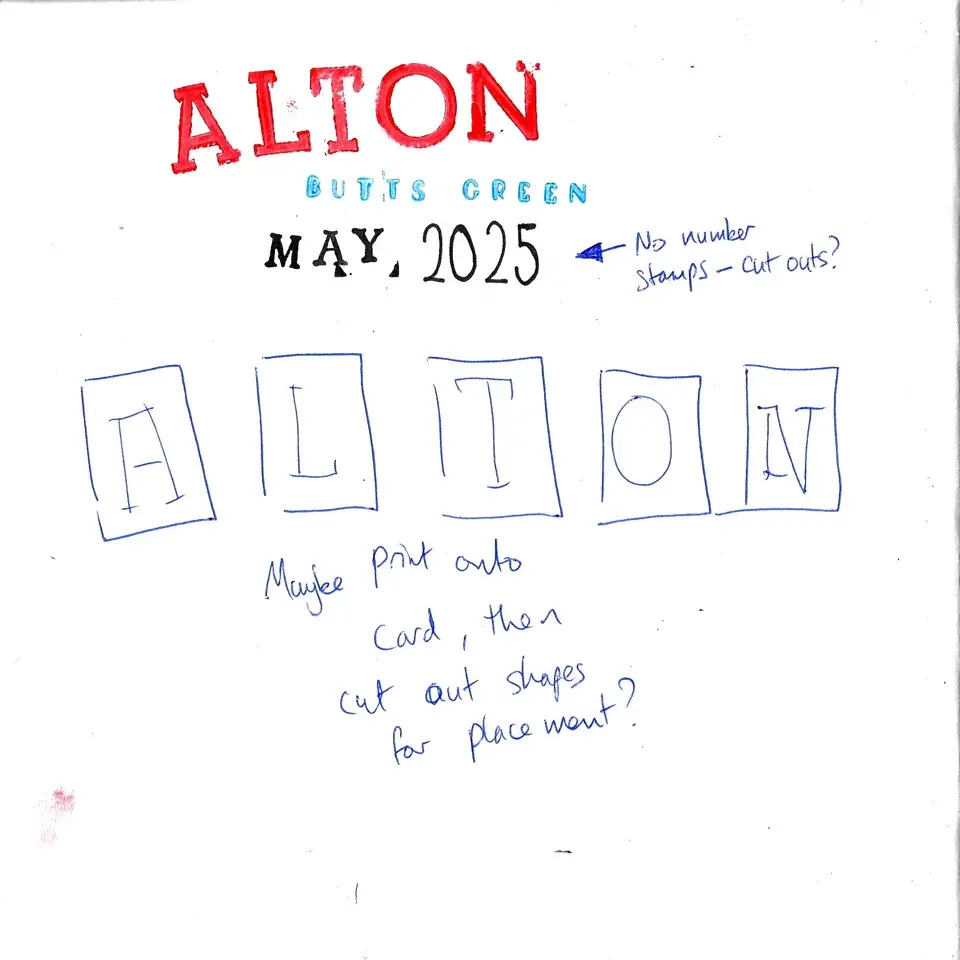 ALTON
BUTTS GREEN
MAY, 2025
No number
stamps – cut outs?
A L T O N
Maybe print onto
card, then
cut out shapes
for placement?